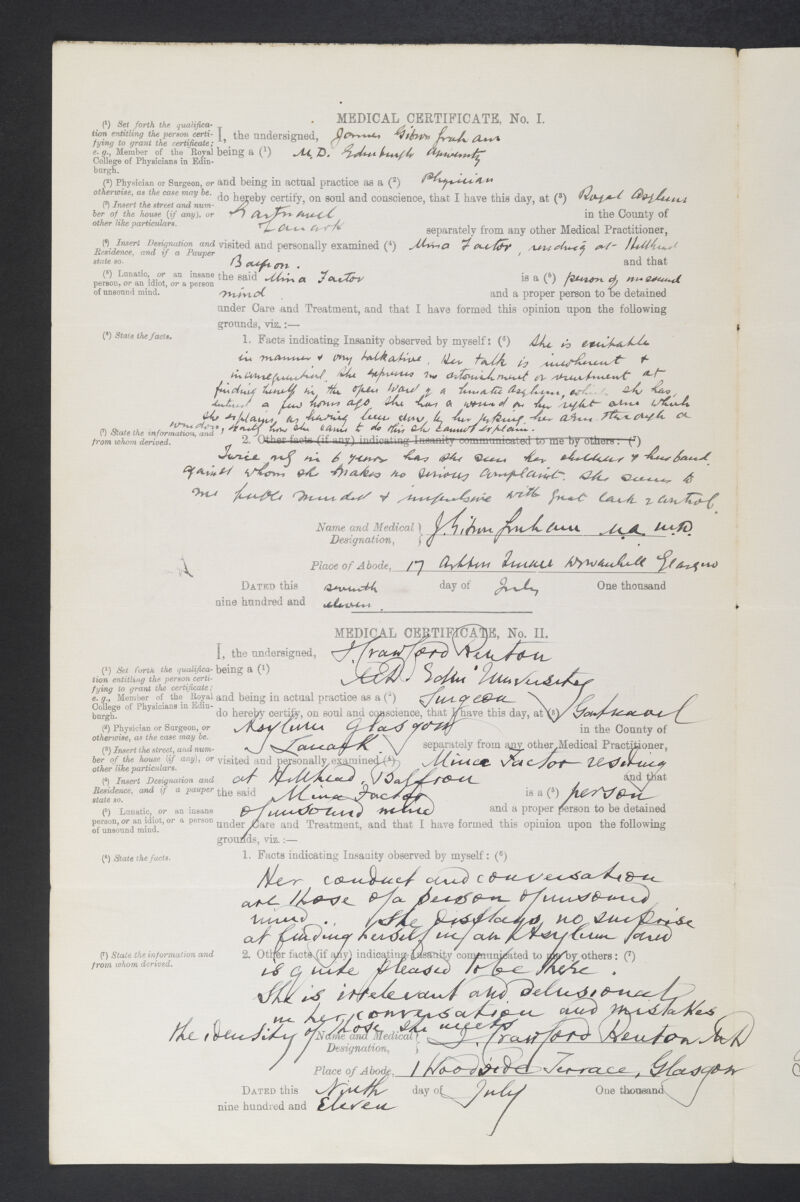 MEDICAL CERTIFICATE, No. I.
(1) Set forth the qualifica-
tion entitling the person certi-
fying to grant the certificate;
e.g., Member of the Royal
College of Physicians in Edin-
burgh.
I, the undersigned, James Gibson Graham
being a (1) M.D. Edinburgh University
(2) Physician or Surgeon, or
otherwise, as the case may be.
and being in actual practice as a (2) Physician
(3) Insert the street and num-
ber of the house (if any), or
other like particulars.
do hereby certify, on soul and conscience, that I have this day, at (3) Royal Asylum
Gartnavel in the County of
Lanark separately from any other Medical Practitioner,
(4) Insert Designation and
Residence, and if a Pauper
state so.
visited and personally examined (4) Mina Factor, residing at Hillhead
Balfron. and that
(5) Lunatic, or an insane
person, or an idiot, or a person
of unsound mind.
the said Mina Factor is a (5) person of unsound
mind and a proper person to be detained
under Care and Treatment, and that I have formed this opinion upon the following
grounds, viz.:—
(6) State the facts.
1. Facts indicating Insanity observed by myself: (6) She is excitable
in manner & very talkative. Her talk is incoherent &
inconsequential. She expresses no astonishment or resentment at
finding herself in the open ward of a lunatic asylum, which she has
entered a few hours ago. She has a wound on her right arm which
she explains as having been done by her putting her arm through a
window, exactly how she came to do this she cannot explain.
(7) State the information, and
from whom derived.
2. Other facts (if any) indicating Insanity communicated to me by others: (7)
Twice only in 6 years has she seen her children & husband,
against whom she makes no serious complaint. She seems to
me feeble minded & impulsive with great lack of control.
Name and Medical
Designation, J. Gibson Graham M.A. M.D.
Place of Abode, 17 Ashton Terrace Dowanhill Glasgow
DATED this seventh day of July One thousand
nine hundred and eleven.
MEDICAL CERTIFICATE, No. II.
I, the undersigned, J. Crawford Renton
(1) Set forth the qualifica-
tion entitling the person certi-
fying to grant the certificate;
e.g., Member of the Royal
College of Physicians in Edin-
burgh.
being a (1)
M.D. Edin University
and being in actual practice as a (2) Surgeon
(2) Physician or Surgeon, or
otherwise, as the case may be.
do hereby certify, on soul and conscience, that I have this day, at (3) Gartnavel
Asylum Glasgow in the County of
(3) Insert the street, and num-
ber of the house (if any), or
other like particulars.
Lanark separately from any other Medical Practitioner,
visited and personally examined (4) Mina Factor residing
(4) Insert Designation and
Residence, and if a pauper
state so.
at Hillhead, Balfron and that
the said Mina Factor is a (5) person
(5) Lunatic, or an insane
person, or an idiot, or a person
of unsound mind.
of unsound mind and a proper person to be detained
under Care and Treatment, and that I have formed this opinion upon the following
grounds, viz.:—
(6) State the facts.
1. Facts indicating Insanity observed by myself: (6)
Her conduct and conversation
are those of a person of unsound
mind. She displays no surprise
at finding herself in an Asylum and
(7) State the information and
from whom derived.
2. Other facts (if any) indicating Insanity communicated to me by others: (7)
is quite pleased to be there.
She is irrelevant and delusional
in her conversation and mistakes
the identity of those she meets
Name and Medical
Designation, J. Crawford Renton M.D
Place of Abode, 1 Woodside Terrace, Glasgow
DATED this Ninth day of July One thousand
nine hundred and Eleven